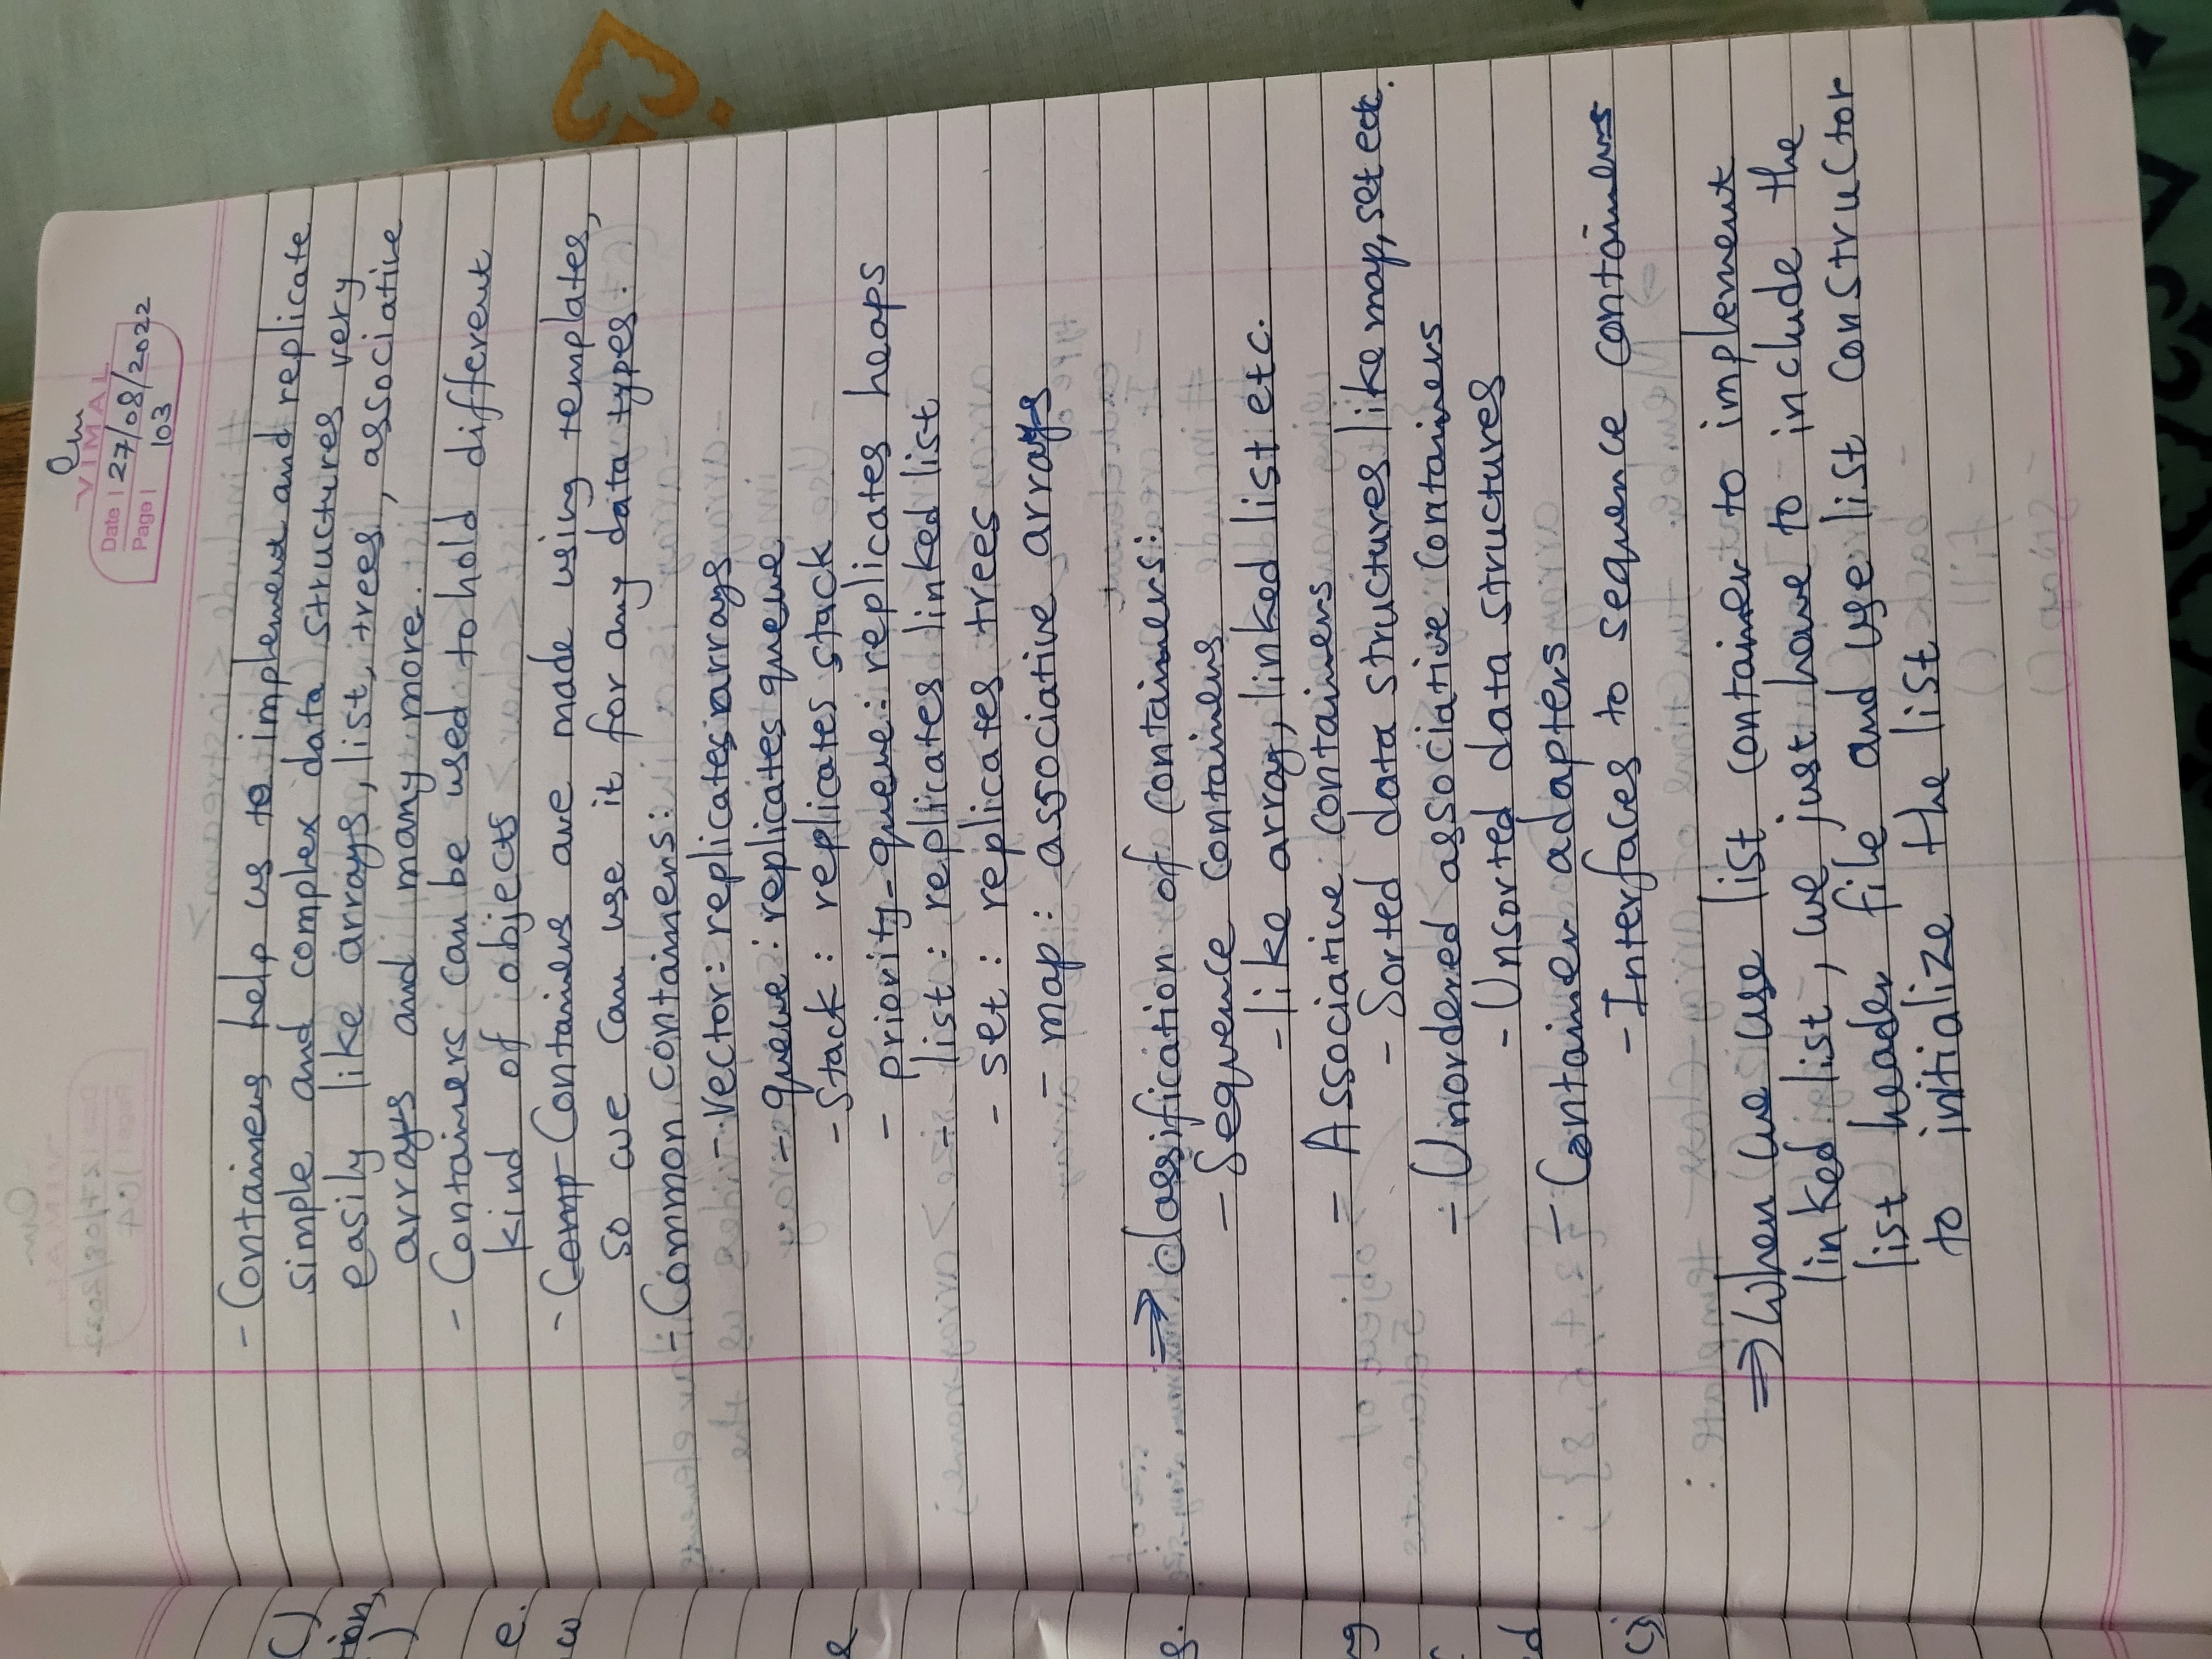 Om
VIMAL
Date | 27/08/2022
Page | 103
- Containers help us to implement and replicate
simple and complex data structures very
easily like arrays, list, trees, associative
arrays and many more.
- Containers can be used to hold different
kind of objects
- Comp Containers are made using templates,
so we can use it for any data types.
- Common containers:
- vector: replicates arrays
- queue: replicates queue
- stack: replicates stack
- priority-queue: replicates heaps
- list: replicates linked list
- set: replicates trees
- map: associative arrays
⇒ classification of containers:
- Sequence containers
- like array, linked list etc.
- Associative containers
- Sorted data structures like map, set etc.
- Unordered associative containers
- Unsorted data structures
- Container adapters
- Interfaces to sequence containers
⇒ When we use list container to implement
linked list, we just have to include the
list header file and use list constructor
to initialize the list